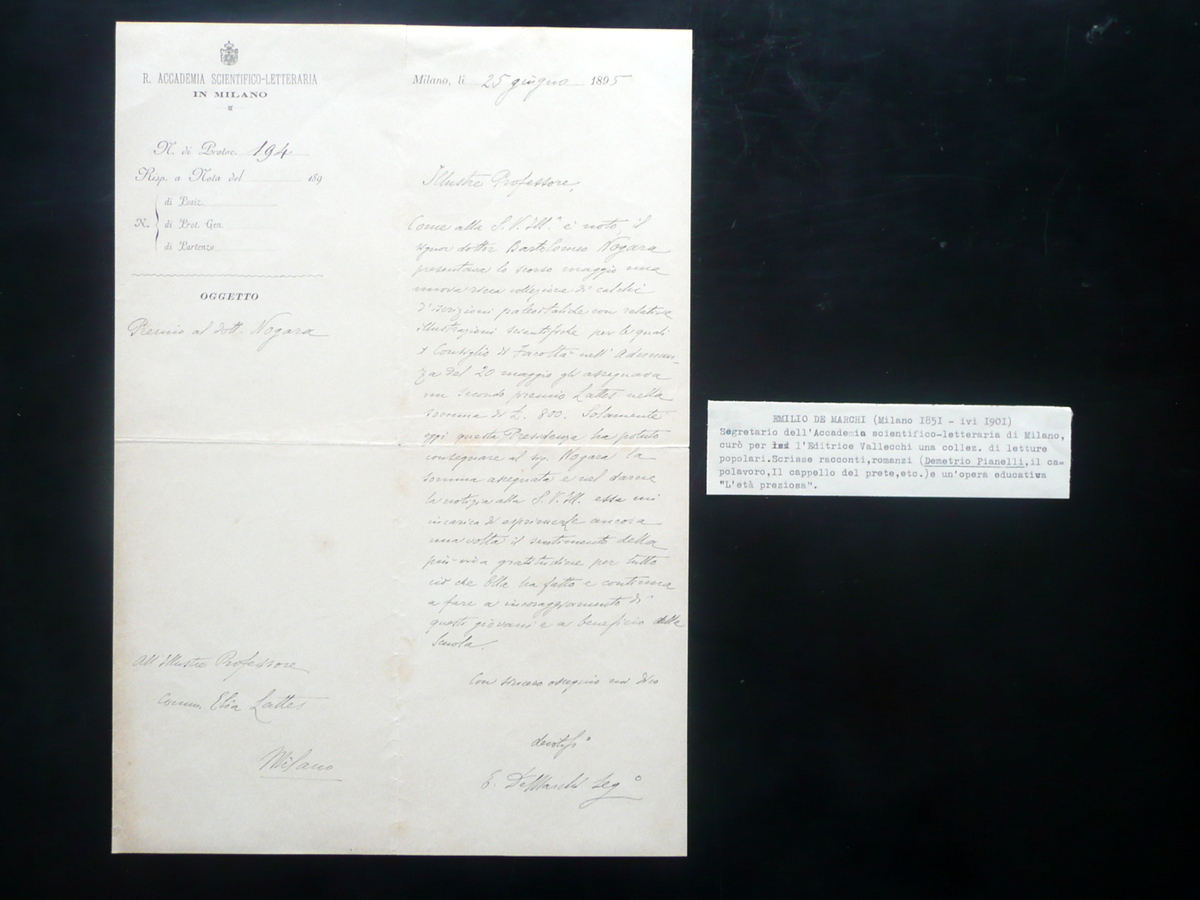 R. ACCADEMIA SCIENTIFICO-LETTERARIA
IN MILANO
N. di Protoc. 194
Risp. a Nota del 189
N.
di Posiz.
di Prot. Gen.
di Partenza
OGGETTO
Premio al dott. Nogara
All'Illustre Professore
Comm. Elia Lattes
Milano
Milano, li 25 giugno 1895
Illustre Professore,
Come alla S. V. Ill.ª è noto, il
signor dottor Bartolomeo Nogara
presentava lo scorso maggio una
nuova ricca collezione di calchi
d'iscrizioni paleoitaliche con relative
illustrazioni scientifiche per le quali
il Consiglio di Facoltà nell'Adunan-
za del 20 maggio gli assegnava
un secondo premio Lattes nella
somma di L. 800. Solamente
oggi questa Presidenza ha potuto
consegnare al sig. Nogara la
somma assegnata e nel darne
la notizia alla S. V. Ill. essa mi
incarica di esprimerle ancora
una volta il sentimento della
più viva gratitudine per tutto
ciò che Ella ha fatto e continua
a fare a incoraggiamento di
questi giovani e a beneficio della
Scuola.
Con sincero ossequio mi dico
devotiss°
E. De Marchi Seg°
EMILIO DE MARCHI (Milano 1851 - ivi 1901)
Segretario dell'Accademia scientifico-letteraria di Milano,
curò per l'Editrice Vallecchi una collez. di letture
popolari.Scrisse racconti,romanzi (Demetrio Pianelli,il ca-
polavoro,Il cappello del prete,etc.)e un'opera educativa
"L'età preziosa".